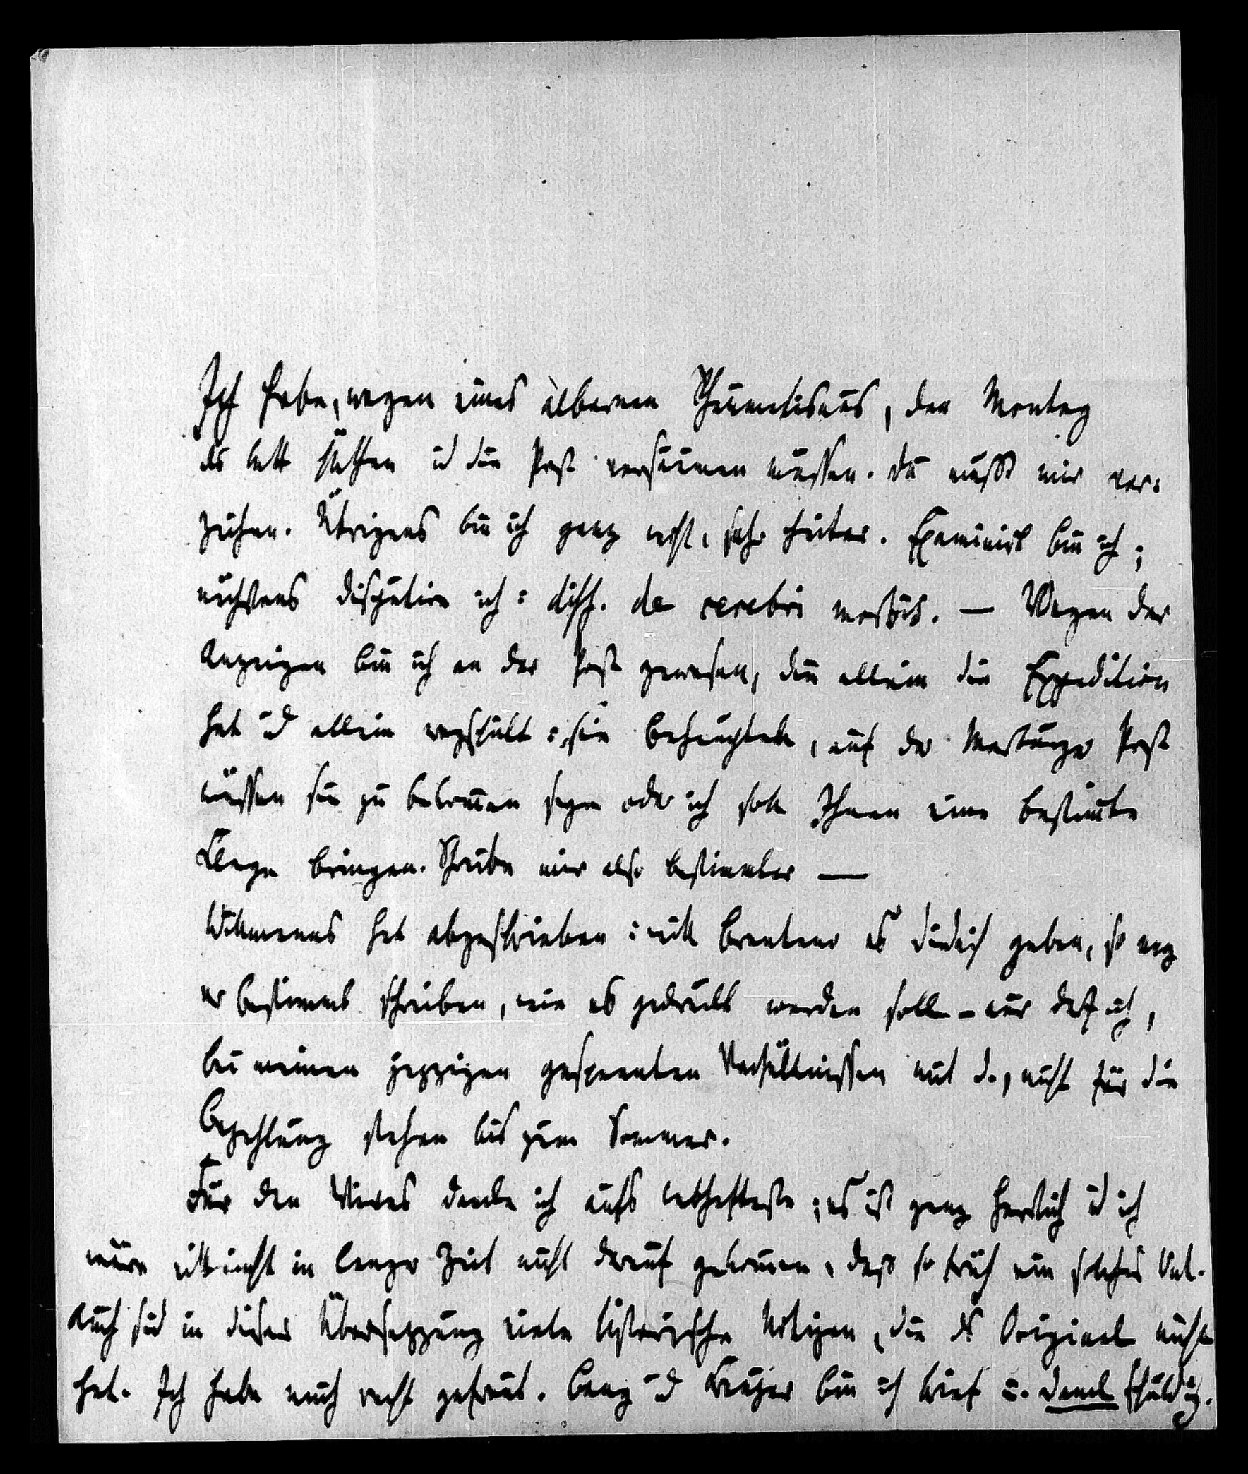 Ich habe, wegen eines albernen Rheumatismus, den Montag
das Bett hüten u die Post versäumen müssen. Du mußt mir ver:
zeihen. Übrigens bin ich ganz wohl, sehr heiter. Examinirt bin ich;
nächstens disputire ich: diss. de cerebri morbis. — Wegen der
Anzeigen bin ich an der Post gewesen, die allein die Expedition
hat u allein wegschickt: sie behauptete, auf der Marburger Post
müssen sie zu bekommen seyn oder ich solle Ihnen eine bestimte
Klage bringen. Schreibe mir also bestimmter —
hat abgeschrieben: will Brentano es Dieterich geben, so mag
er bestimmt schreiben, wie es gedruckt werden soll – nur daß ich,
bei meinen jezzigen gespannten Verhältnissen mit D., nicht für die
Bezahlung stehen bis zum Sommer.
Für den danke ich aufs lebhafteste; es ist ganz herrlich u ich
wäre vielleicht in langer Zeit nicht darauf gekommen, daß so früh ein solches
Auch sind in dieser Übersezzung viele historische Notizen, die das Original nicht
hat. Ich habe mich recht gefreut. bin ich Brief u. Dank schuldig.